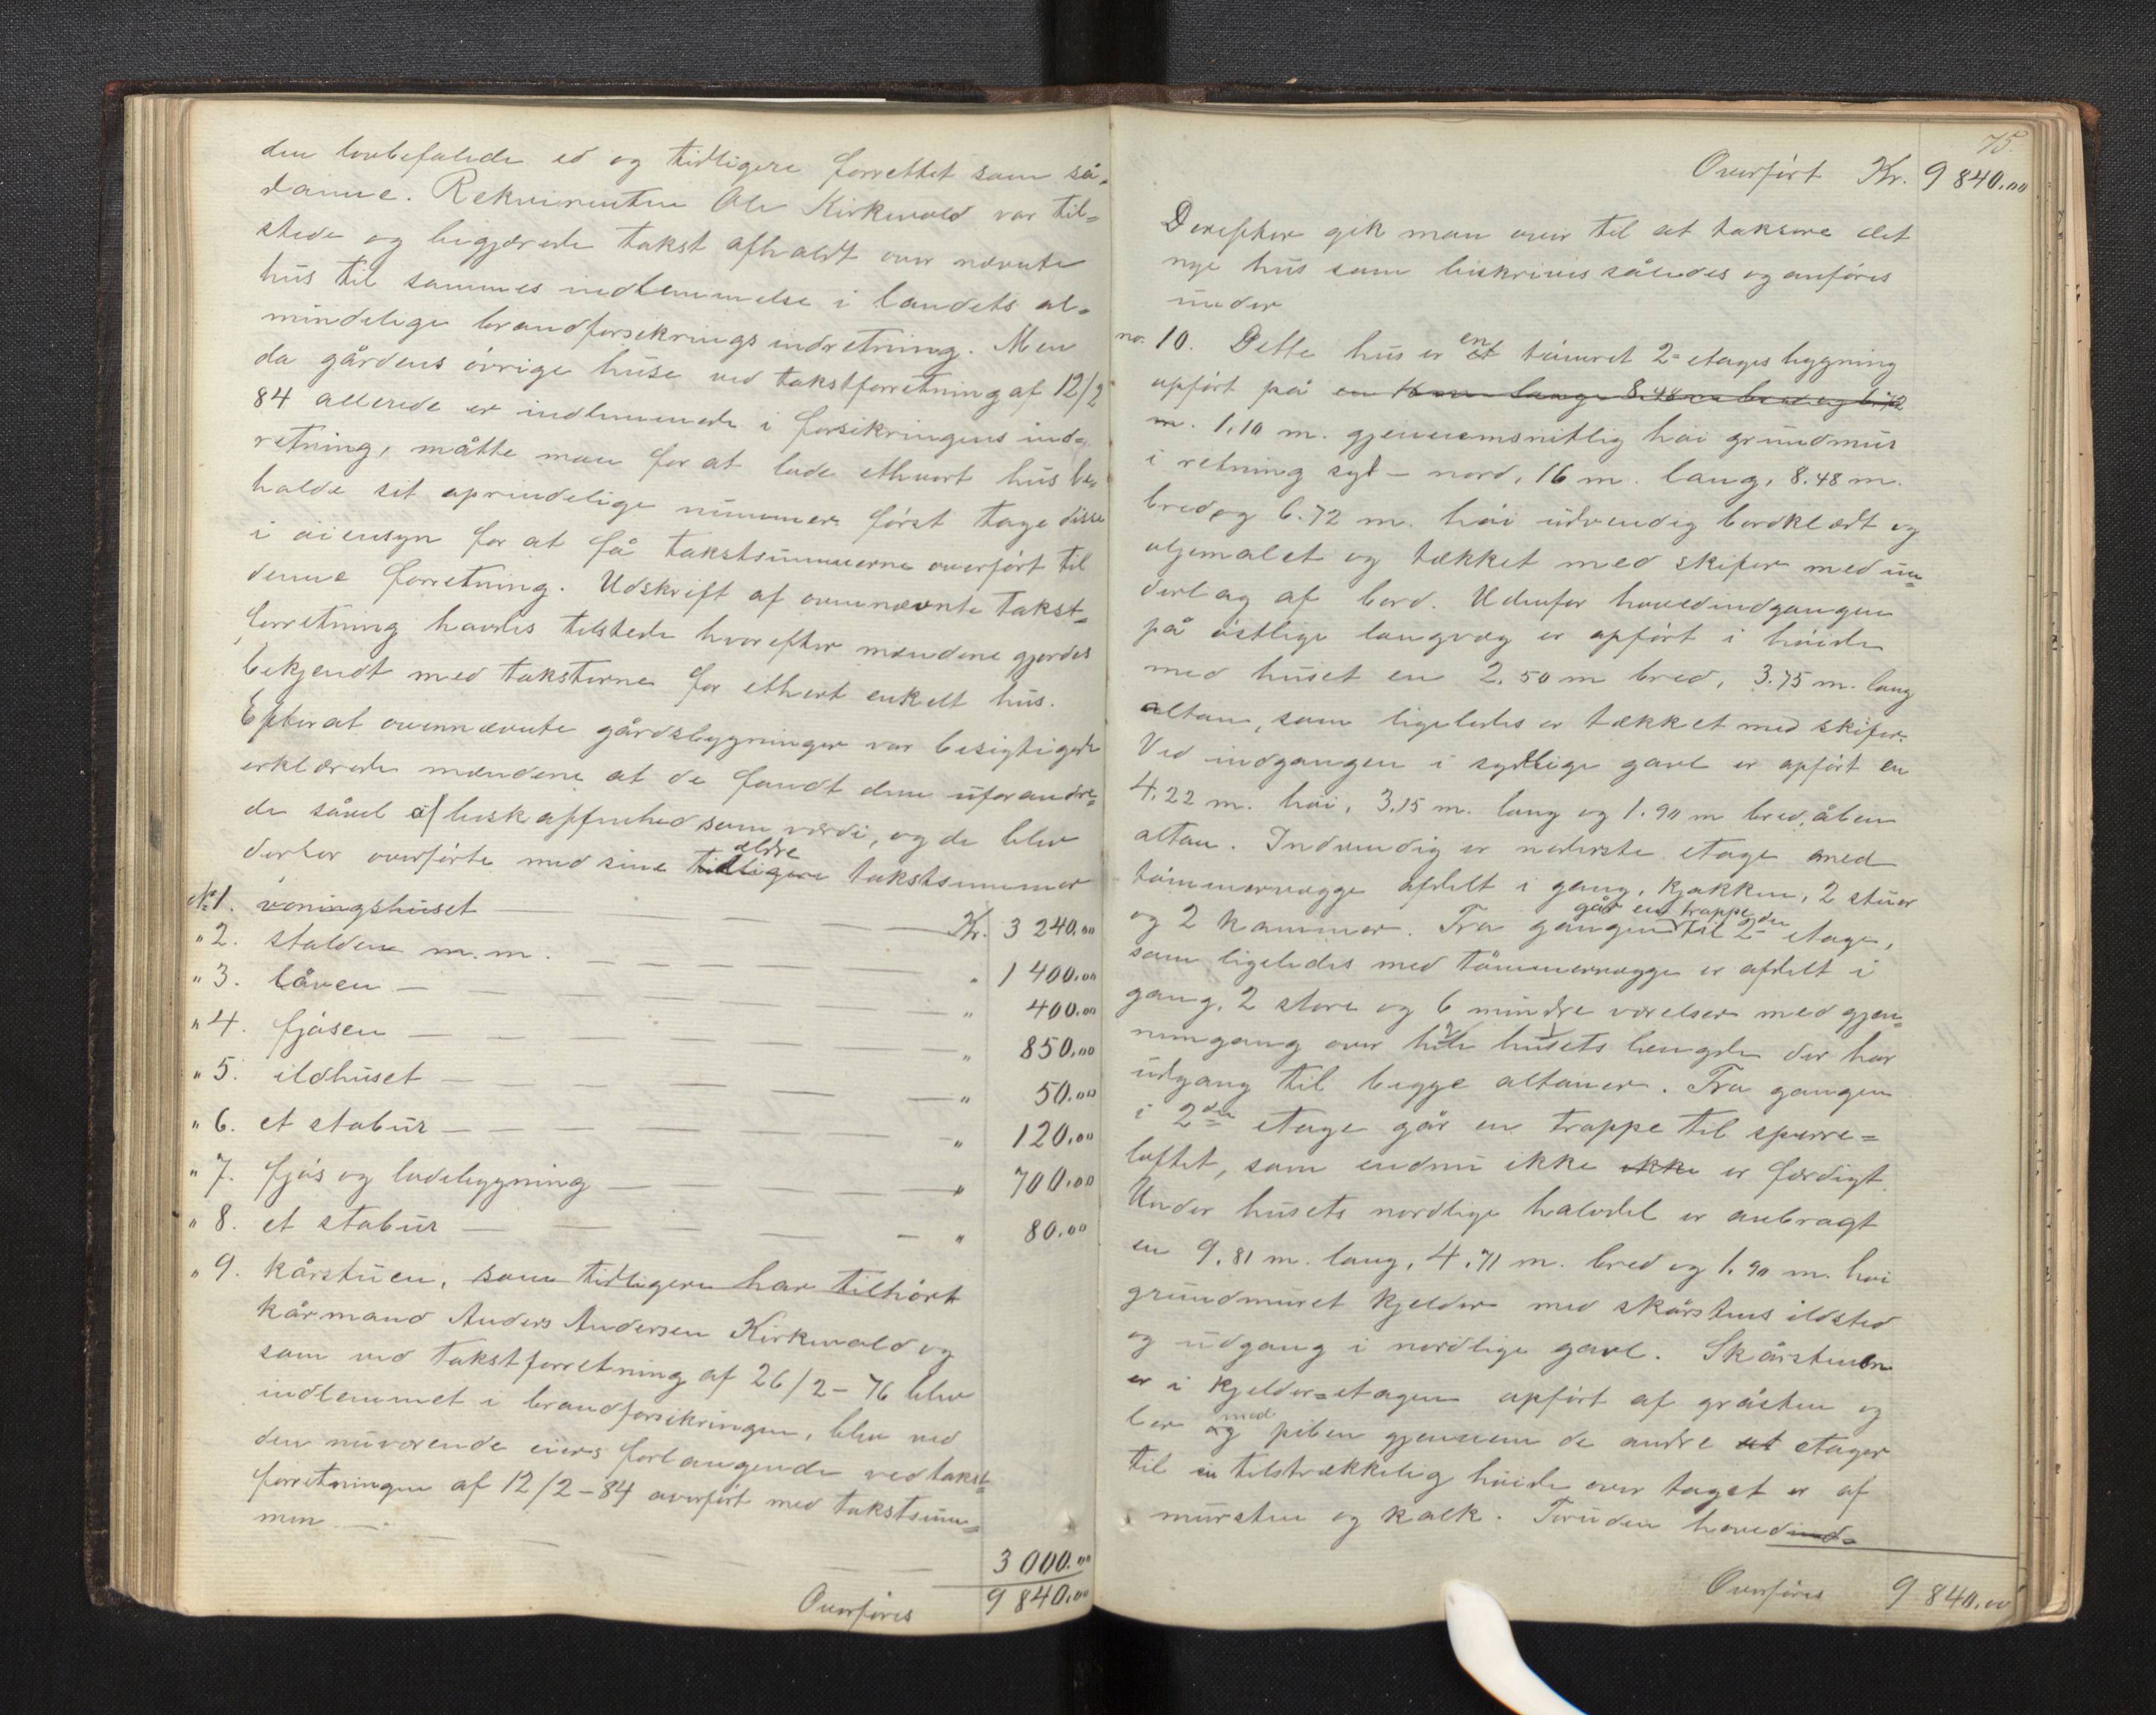 den lovbefalede ed og tidligere forrettet som så-
danne. Rekvirenten Ole Kirkvold var til=
stede og begjærede takst afholdt over nævnte
hus til sammes indlemmelse i landets al-
mindelige brandforsekringsindretning. Men
da gårdens övrige huse ved takstforretning af 12/2
84 allerede er indlemmede i forsikringens ind-
retning, måtte man for at lade ethvert hus be-
holde sit oprindelige nummer först tage disse
i öiensyn for at få takstsummerne overfört til
denne forretning. Udskrift af ovennævnte takst=
forretning havdes tilstede hvorefter mændene gjordes
bekjendt med taksterne for ethvert enkelt hus.
Efterat ovennævnte gårdsbygninger var besigtigede
erklærede mændene at de fandt dem uforandre-
de såvel af beskaffenhed som værdi, og de blev
derfor overförte med sine tidligere ældre takstsummer
No 1. våningshuset — Kr. 3 240.00
" 2. stalden m.m. — " 1 400.00
" 3. låven — " 400.00
" 4. fjösen — " 850.00
" 5. ildhuset — " 50.00
" 6. et stabur — " 120.00
" 7. fjös og ladebygning — " 700.00
" 8. et stabur — " 80.00
" 9. kårstuen, som tidligere har tilhört
kårmand Anders Andersen Kirkvold og
som ved takstforretning af 26/2 - 76 blev
indlemmet i brandforsikringen, blev ved
den nuværende eiers forlangende ved takst=
forretningen af 12/2 - 84 overfört med takstsum=
men — 3 000.00
Overföres 9 840.00
75.
Overfört Kr. 9 840.00
Derefter gik man over til at taksere det
nye hus som beskrives således og anföres
under
no. 10. Dette hus er et en tömret 2-etages bygning
opfört på en 16 m lang 8.48 m bred og 6.72
m. 1,10 m. gjennemsnitlig höi grundmur
i retning syd - nord, 16 m. lang, 8.48 m.
bred og 6.72 m. höi udvendig bordklædt og
oljemalet og tækket med skifer med un=
derlag af bord. Udenfor hovedindgangen
på östlige langvæg er opfört i höide
med huset en 2.50 m bred, 3.75 m. lang
altan, som ligeledes er tækket med skifer.
Ved indgangen i sydlige gavl er opfört en
4.22 m. höi, 3.15 m. lang og 1.90 m bred, åben
altan. Indvendig er nederste etage med
tömmervægge afdelt i gang, kjökken, 2 stuer
og 2 kammer. Fra gangen går en trappe til 2den etage,
som ligeledes med tömmervægge er afdelt i
gang, 2 store og 6 mindre værelser med gjen=
nemgang over hele husets længde der har
udgang til begge altaner. Fra gangen
i 2den etage går en trappe til sperre=
loftet, som endnu ikke ikke er færdigt.
Under husets nordlige halvdel er anbragt
en 9.81 m. lang, 4.71 m. bred og 1.90 m. höi
grundmuret kjelder med skårstens ildsted
og udgang i nordlige gavl. Skårstenen
er i kjelder=etagen opfört af gråsten og
ler og med piben gjennem de andre et etager
til en tilstrækkelig höide over taget er af
mursten og kalk. Foruden hovedind-
Overföres 9 840.00